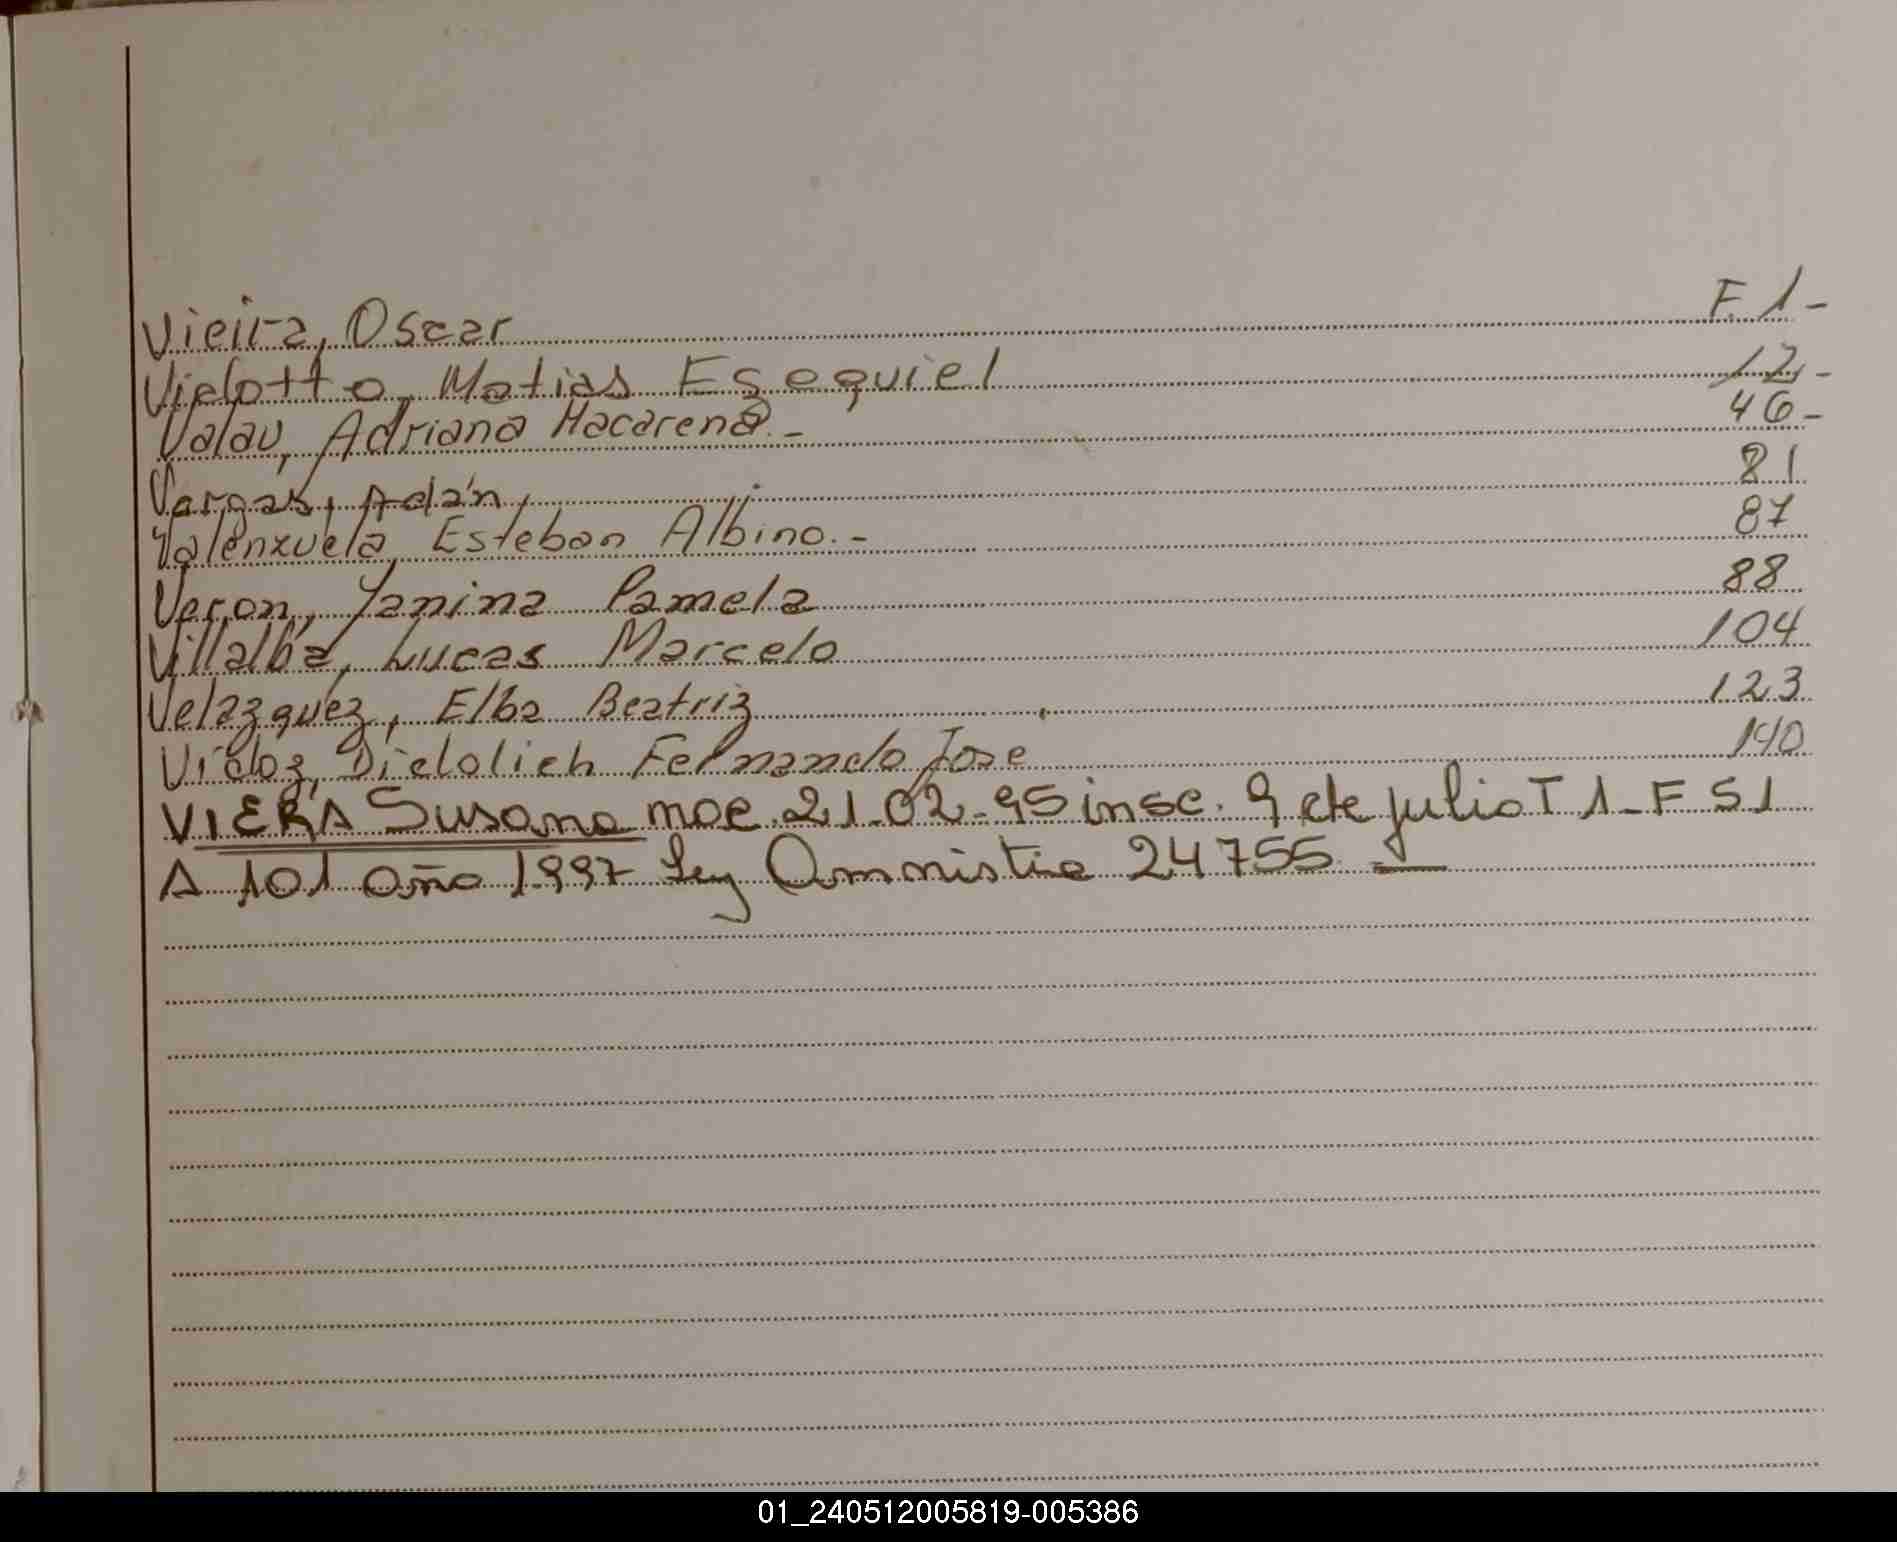 Vieira, Oscar F. 1-
Vielotto, Matias Esequiel 12-
Valau, Adriana Macarena.- 46-
Vargas, Adán, 81
Valenzuela, Esteban Albino.- 87
Veron, Yanina Pamela 88
Villalba, Lucas Marcelo 104
Velázquez, Elba Beatriz 123
Vidoz, Dielolich Fernando Jose 140
VIERA Susana nac. 21-02-95 insc. 9 de julio T 1-F 51
A 101 año 1997 Ley Amnistia 24755 —
01_240512005819-005386